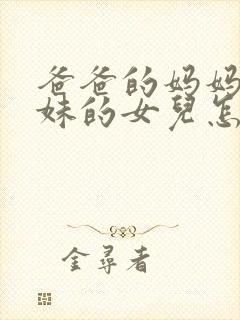 爸爸的妈妈
妹的女兒怎
金尋者